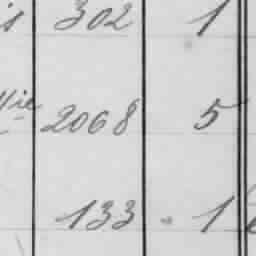 302 1
2068 5
133 1